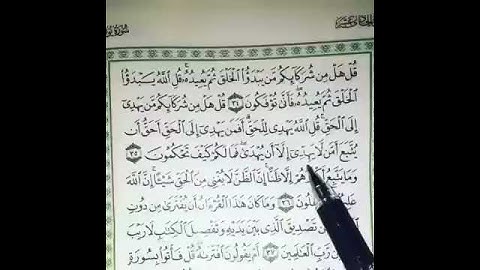 سُورَةُ
قُلْ هَلْ مِن شُرَكَآئِكُم مَّن يَبْدَؤُا۟ ٱلْخَلْقَ ثُمَّ يُعِيدُهُۥ ۚ قُلِ ٱللَّهُ يَبْدَؤُا۟
ٱلْخَلْقَ ثُمَّ يُعِيدُهُۥ ۖ فَأَنَّىٰ تُؤْفَكُونَ ٣٤ قُلْ هَلْ مِن شُرَكَآئِكُم مَّن يَهْدِىٓ
إِلَى ٱلْحَقِّ ۚ قُلِ ٱللَّهُ يَهْدِى لِلْحَقِّ ۗ أَفَمَن يَهْدِىٓ إِلَى ٱلْحَقِّ أَحَقُّ أَن
يُتَّبَعَ أَمَّن لَّا يَهِدِّىٓ إِلَّآ أَن يُهْدَىٰ ۖ فَمَا لَكُمْ كَيْفَ تَحْكُمُونَ ٣٥
وَمَا يَتَّبِعُ إِلَّا ظَنًّا ۚ إِنَّ ٱلظَّنَّ لَا يُغْنِى مِنَ ٱلْحَقِّ شَيْـًٔا ۚ إِنَّ ٱللَّهَ
٣٦ وَمَا كَانَ هَٰذَا ٱلْقُرْءَانُ أَن يُفْتَرَىٰ مِن دُونِ
تَصْدِيقَ ٱلَّذِى بَيْنَ يَدَيْهِ وَتَفْصِيلَ ٱلْكِتَٰبِ لَا رَيْبَ
مِن رَّبِّ ٱلْعَٰلَمِينَ ٣٧ أَمْ يَقُولُونَ ٱفْتَرَىٰهُ ۖ قُلْ فَأْتُوا۟ بِسُورَةٍ